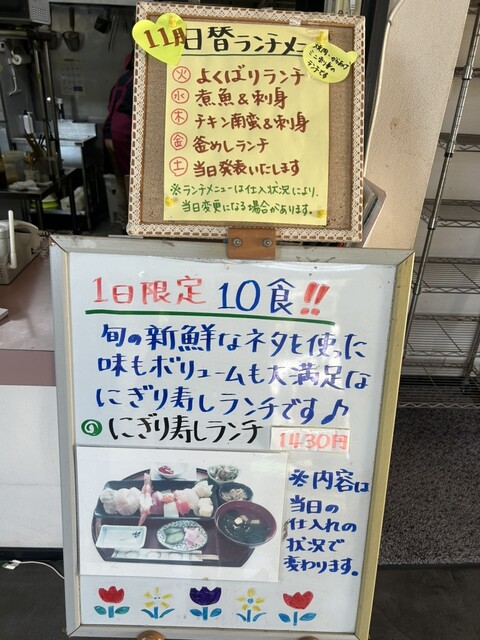 11月日替ランチメニュー
㊋ よくばりランチ
㊌ 煮魚&刺身
㊍ チキン南蛮&刺身
㊎ 釜めしランチ
㊏ 当日発表いたします
※ランチメニューは仕入状況により、
当日変更になる場合があります。
1日限定 10食!!
旬の新鮮なネタを使った
味もボリュームも大満足な
にぎり寿しランチです♪
にぎり寿しランチ 1430円
※内容は
当日の
仕入れの
状況で
変わります。